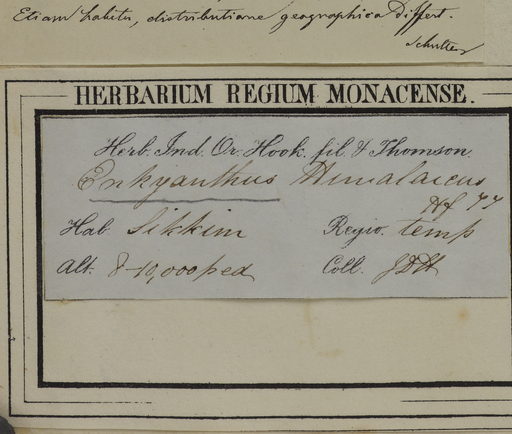 Etiam habitu, distributione geographica differt.
Schultes
HERBARIUM REGIUM MONACENSE.
Herb. Ind. Or. Hook. fil. & Thomson.
Enkyanthus Himalaicus
Hf & T
Hab. Sikkim Regio. temp
Alt. 8-10,000 ped Coll. JDH